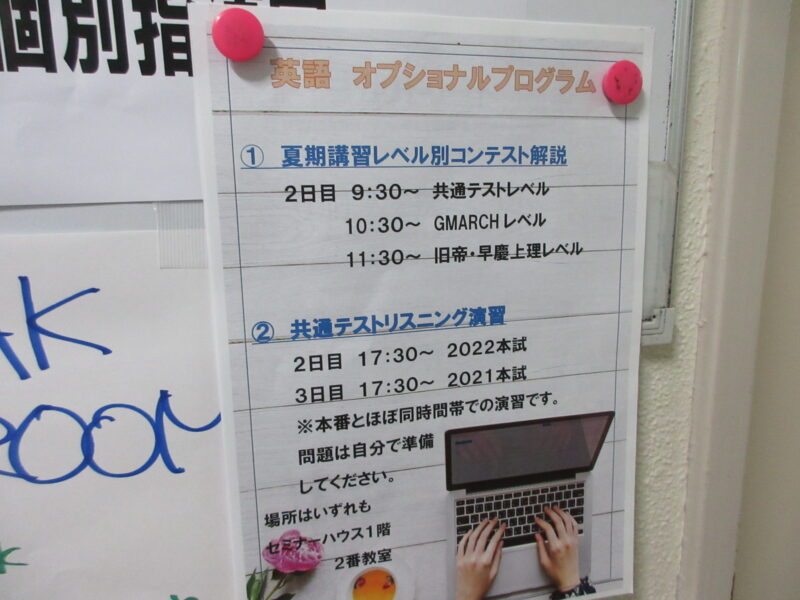 個別指導
英語 オプショナルプログラム
① 夏期講習レベル別コンテスト解説
2日目 9:30～ 共通テストレベル
10:30～ GMARCHレベル
11:30～ 旧帝・早慶上理レベル
② 共通テストリスニング演習
2日目 17:30～ 2022本試
3日目 17:30～ 2021本試
※本番とほぼ同時間帯での演習です。
問題は自分で準備
してください。
場所はいずれも
セミナーハウス1階
2番教室
ROOM